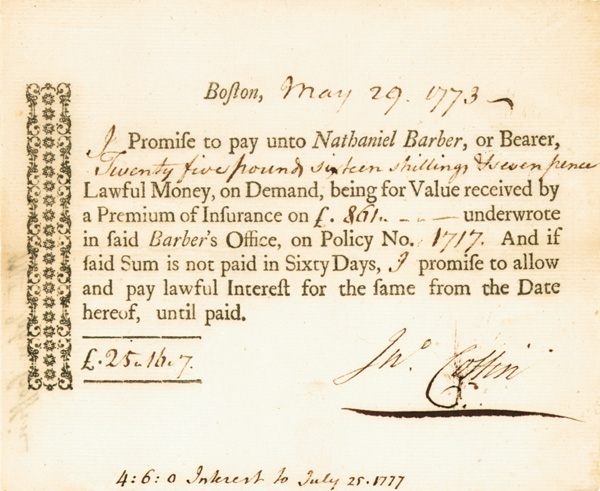 Boſton, May 29. 1773
I Promise to pay unto Nathaniel Barber, or Bearer,
Twenty five pounds sixteen shillings & seven pence
Lawful Money, on Demand, being for Value received by
a Premium of Insurance on £. 861.. - - — underwrote
in ſaid Barber's Office, on Policy No. 1717. And if
ſaid Sum is not paid in Sixty Days, I promise to allow
and pay lawful Intereſt for the same from the Date
hereof, until paid.
£. 25.. 16.. 7.
Jnº. Coffin
4:6:0 Interest to July 25. 1777